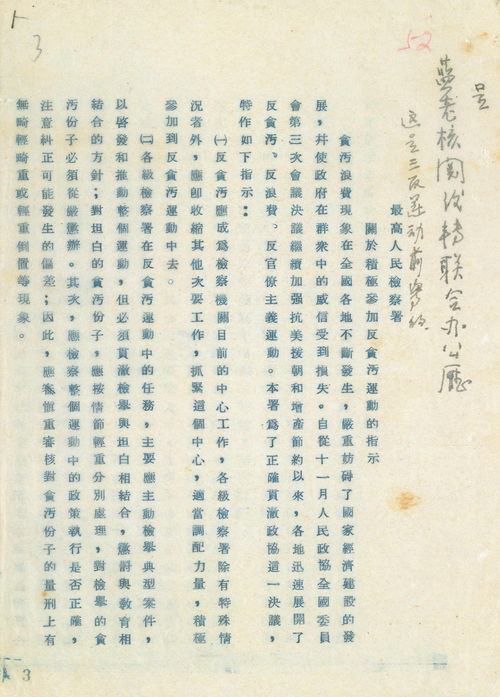 52
3
呈
蓝老核阅后转联合办公厅
这是三反运动前学的
最高人民檢察署
關於積極參加反貪汚運動的指示
貪汚浪費現象在全國各地不斷發生，嚴重妨碍了國家經濟建設的發
展，幷使政府在群衆中的威信受到損失。自從十一月人民政協全國委員
會第三次會議決議繼續加强抗美援朝和增產節約以來，各地迅速展開了
反貪汚、反浪費、反官僚主義運動。本署爲了正確貫澈政協這一決議，
特作如下指示：
㈠反貪汚應成爲檢察機關目前的中心工作，各級檢察署除有特殊情
況者外，應卽收縮其他次要工作，抓緊這個中心，適當調配力量，積極
參加到反貪汚運動中去。
㈡各級檢察署在反貪汚運動中的任務，主要應主動檢舉典型案件，
以啓發和推動整個運動，但必須貫澈檢舉與坦白相結合，懲罰與敎育相
結合的方針；對坦白的貪汚份子，應按情節輕重分別處理，對檢舉的貪
汚份子必須從嚴懲辦。其次，應檢察整個運動中的政策執行是否正確，
注意糾正可能發生的偏差；因此，應愼重審核對貪汚份子的量刑上有
無畸輕畸重或輕重倒置等現象。
3